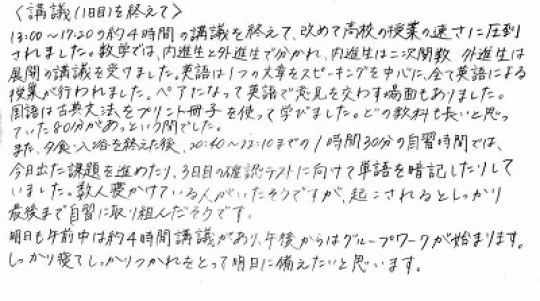 〈講議(1日目)を終えて〉
13:00～17:20の約4時間の講議を終えて、改めて高校の授業の速さに圧到
されました。数学では、内進生と外進生で分かれ、内進生は二次関数、外進生は
展開の講議を受けました。英語は1つの文章をスピーキングを中心に、全て英語による
授業が行われました。ペアになって英語で意見を交わす場面もありました。
国語は古典文法をプリント冊子を使って学びました。どの教科も長いと思っ
ていた80分があっという間でした。
また、夕食・入浴を終えた後、20:40～22:10までの1時間30分の自習時間では、
今日出た課題を進めたり、3日目の確認テストに向けて単語を暗記したりして
いました。数人寝かけている人がいたそうですが、起こされるとしっかり
最後まで自習に取り組んだそうです。
明日も午前中は約4時間講議があり、午後からはグループワークが始まります。
しっかり寝てしっかりつかれをとって明日に備えたいと思います。